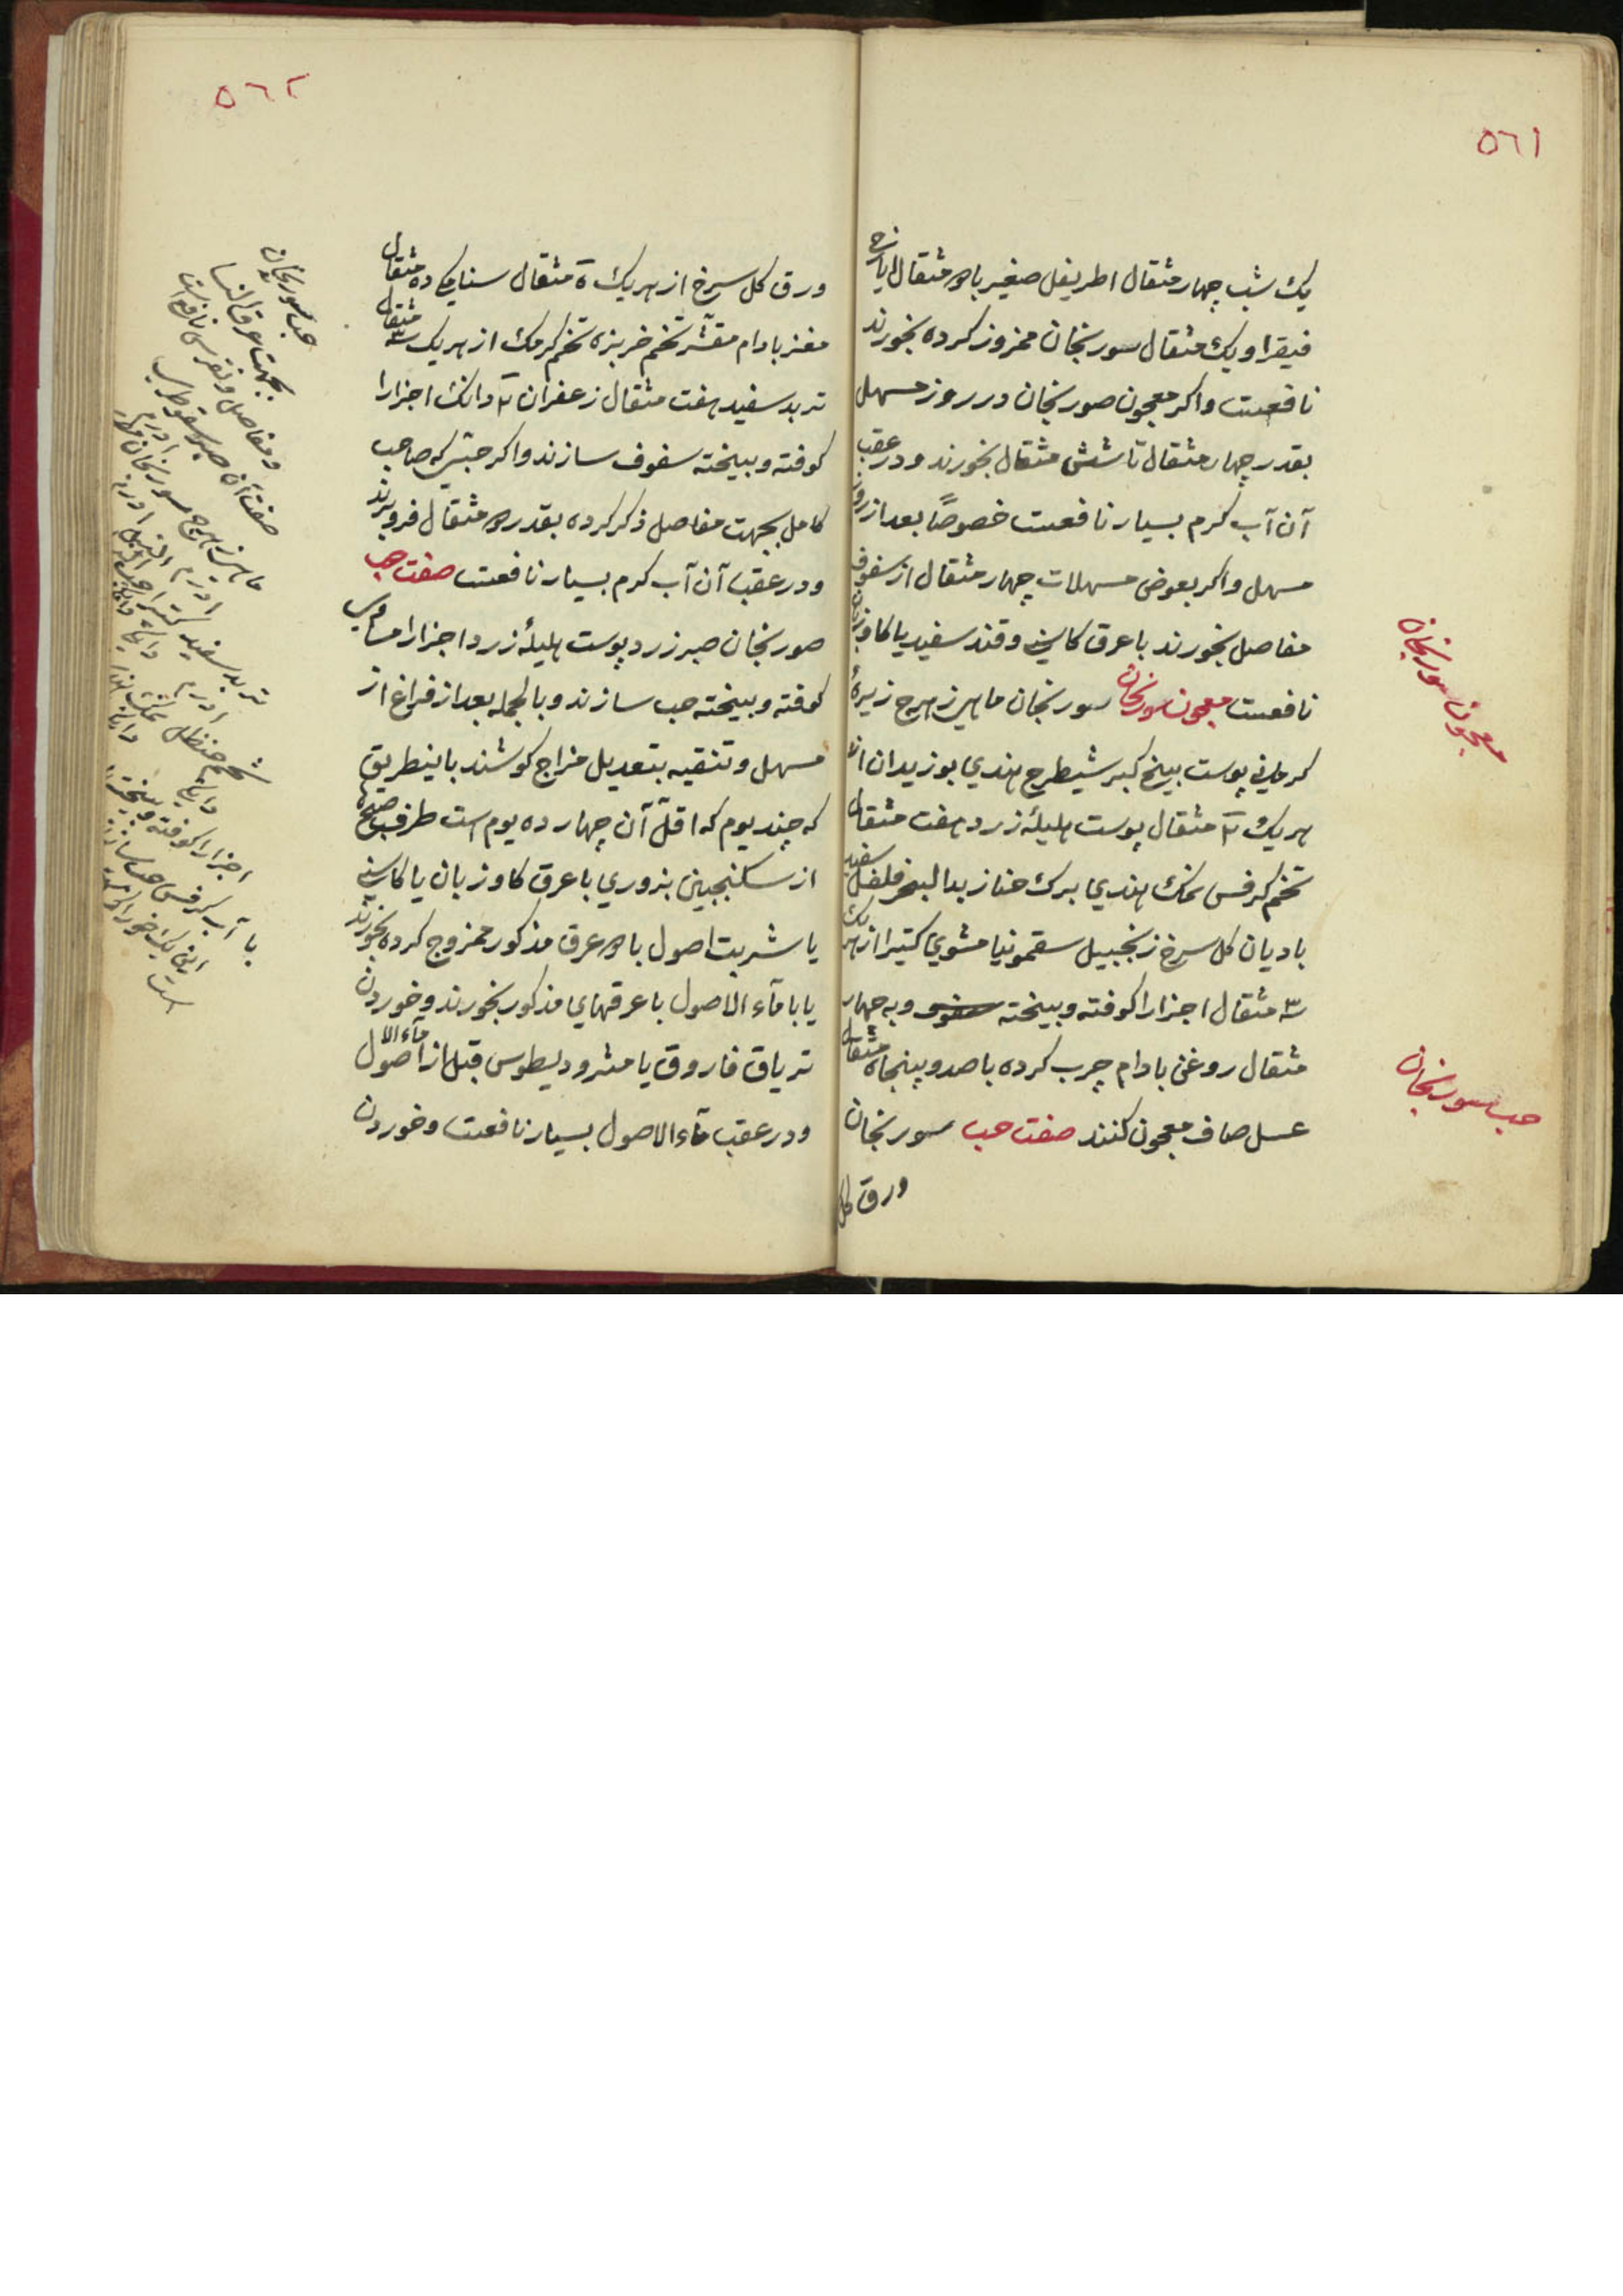 ٥٦١
یک شب چهار مثقال اطریفل صغیر با مثقال ایارج
فیقرا و یک مثقال سورنجان ممزوز کرده بخورند
نافعست واکر معجون صورنجان در روز مسهل
بقدر چهار مثقال تا شش مثقال بخورند ودر عقب
آن آب کرم بسیار نافعست خصوصًا بعد از روز
مسهل واکر بعوض مسهلات چهار مثقال از سفوف
مفاصل بخورند با عرق کاسنی وقند سفید یا کاوزبان
نافعست معجون سورنجان سورنجان ماهیزهرج زیرهٔ
کرمانی پوست بیخ کبر شیطرج هندي بوزیدان از
هریک ٣ مثقال پوست هلیلهٔ زرد هفت مثقال
تخم کرفس نمک هندي برک حنا زبد البحر فلفل سفید
بادیان کل سرخ زنجبیل سقمونیا مشوي کتیرا از هریک
٣ مثقال اجزارا کوفته وبیخته وبه چهار
مثقال روغن بادام چرب کرده با صد وپنجاه مثقال
عسل صاف معجون کنند صفت حب سورنجان
ورق کل
معجون سورنجان
حب سورنجان
٥٦٢
ورق کل سرخ از هریک ٥ مثقال سنای مکی ده مثقال
مغز بادام مقشّر تخم خربزه تخم کرمک از هریک ٣ مثقال
تربد سفید هفت مثقال زعفران ٢ دانک اجزارا
کوفته وبیخته سفوف سازند واکر حبّیکه صاحب
کامل بجهت مفاصل ذکر کرده بقدر مثقال فروبرند
ودر عقب آن آب کرم بسیار نافعست صفت حب
صورنجان صبر زرد پوست هلیلهٔ زرد اجزارا مساوي
کوفته وبیخته حب سازند وبالجمله بعد از فراغ از
مسهل وتنقیه بتعدیل مزاج کوشند باینطریق
که چند یوم که اقلّ آن چهارده یوم است طرف صبح
از سکنجبین بزوري با عرق کاوزبان یا کاسنی
یا شربت اصول با عرق مذکور ممزوج کرده بخورند
یا با مآء الاصول با عرقهاي مذکور بخورند وخوردن
تریاق فاروق یا مثرودیطوس قبل از مآء الاصول
ودر عقب مآء الاصول بسیار نافعست وخوردن
حب سورنجان
بجهت عرق النسا
ومفاصل ونقرس نافع است
صفت آن صبر سقوطری
ماهیزهرج سورنجان
تربد سفید کتیرا
شحم حنظل
اجزارا کوفته وبیخته
با آب کرفس حب سازند